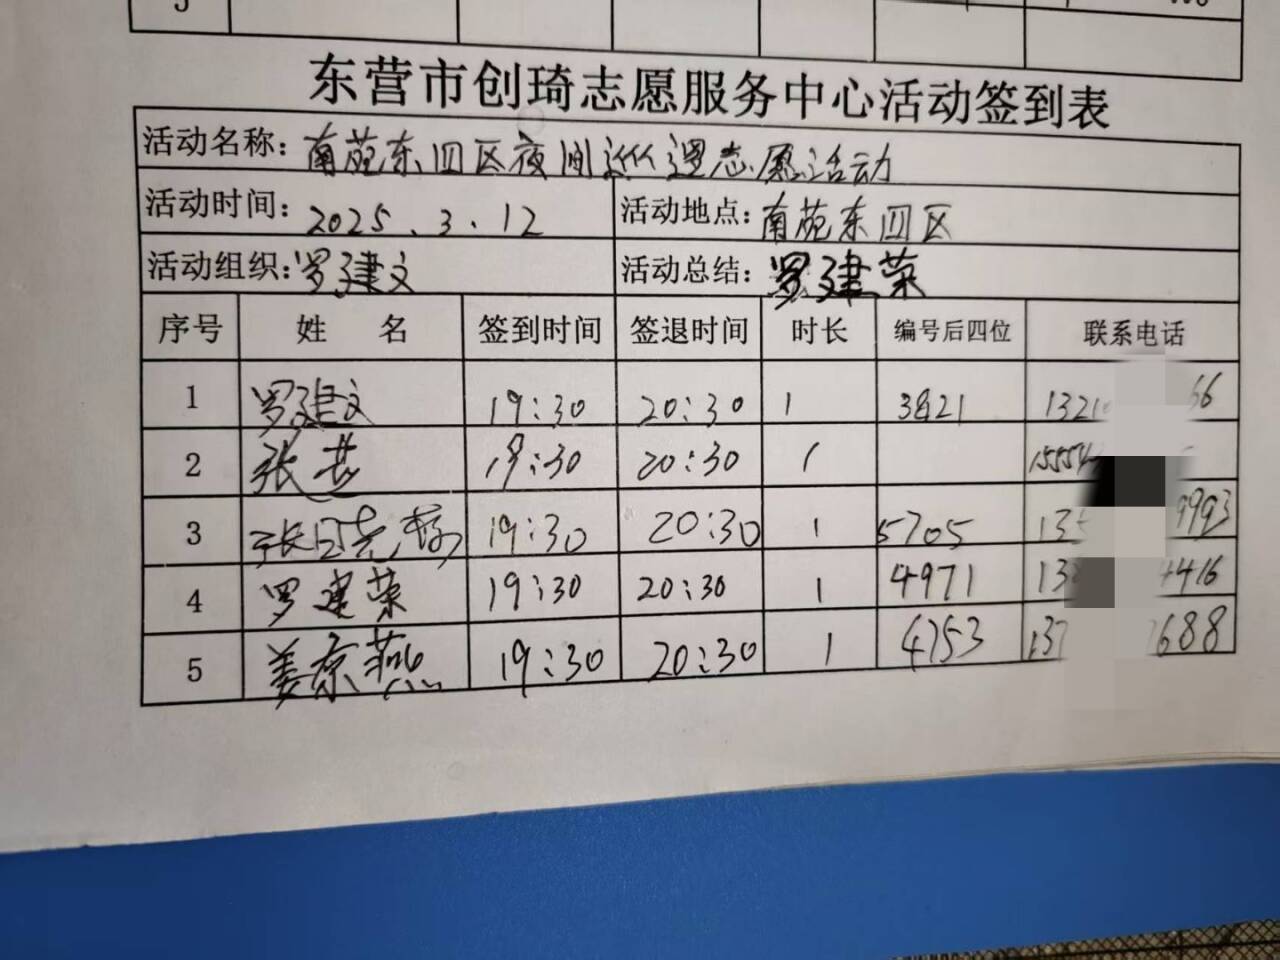 东营市创琦志愿服务中心活动签到表
活动名称：南苑东四区夜间巡逻志愿活动
活动时间：2025.3.12 活动地点：南苑东四区
活动组织：罗建文 活动总结：罗建荣
序号 姓名 签到时间 签退时间 时长 编号后四位 联系电话
1 罗建文 19:30 20:30 1 3821 1321 66
2 张 19:30 20:30 1 1555
3 张 19:30 20:30 1 5705 13 9993
4 罗建荣 19:30 20:30 1 4971 13 4416
5 姜京燕 19:30 20:30 1 4753 137 688